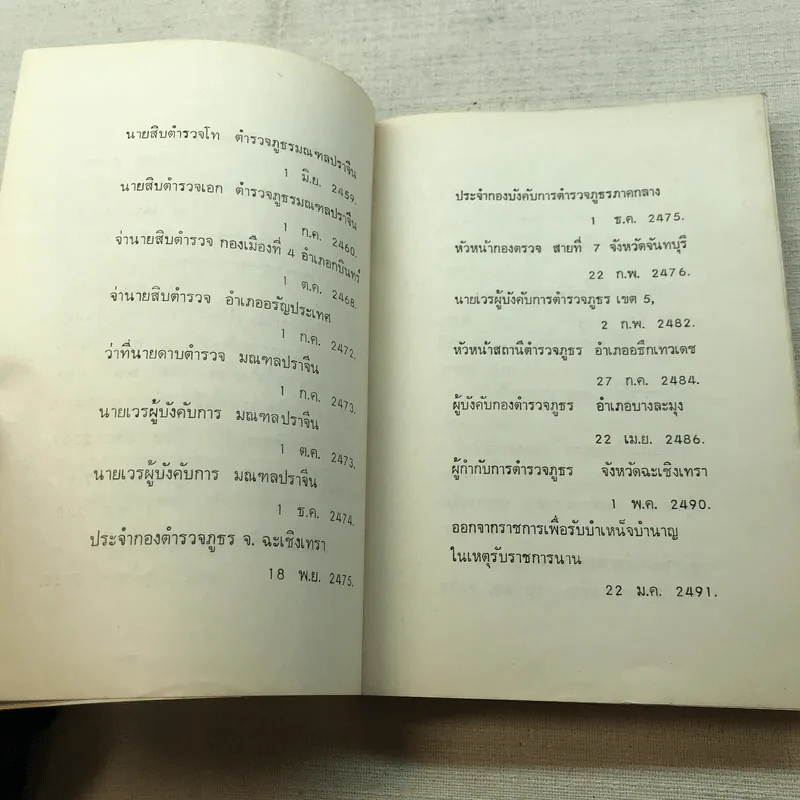 นายสิบตำรวจโท ตำรวจภูธรมณฑลปราจีน
1 มิ.ย. 2459.
นายสิบตำรวจเอก ตำรวจภูธรมณฑลปราจีน
1 ก.ค. 2460.
จ่านายสิบตำรวจ กองเมืองที่ 4 อำเภอกบินทร์
1 ต.ค. 2468.
จ่านายสิบตำรวจ อำเภออรัญประเทศ
1 ก.ค. 2472.
ว่าที่นายดาบตำรวจ มณฑลปราจีน
1 ก.ค. 2473.
นายเวรผู้บังคับการ มณฑลปราจีน
1 ต.ค. 2473.
นายเวรผู้บังคับการ มณฑลปราจีน
1 ธ.ค. 2474.
ประจำกองตำรวจภูธร จ. ฉะเชิงเทรา
18 พ.ย. 2475.
ประจำกองบังคับการตำรวจภูธรภาคกลาง
1 ธ.ค. 2475.
หัวหน้ากองตรวจ สายที่ 7 จังหวัดจันทบุรี
22 ก.พ. 2476.
นายเวรผู้บังคับการตำรวจภูธร เขต 5,
2 ก.พ. 2482.
หัวหน้าสถานีตำรวจภูธร อำเภออธึกเทวเดช
27 ก.ค. 2484.
ผู้บังคับกองตำรวจภูธร อำเภอบางละมุง
22 เม.ย. 2486.
ผู้กำกับการตำรวจภูธร จังหวัดฉะเชิงเทรา
1 พ.ค. 2490.
ออกจากราชการเพื่อรับบำเหน็จบำนาญ
ในเหตุรับราชการนาน
22 ม.ค. 2491.